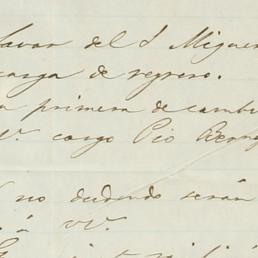 favor del S Migue
carga de regreso.
a primera de cambi
V. cargo Pio Berme
no dudando serán
á VV.